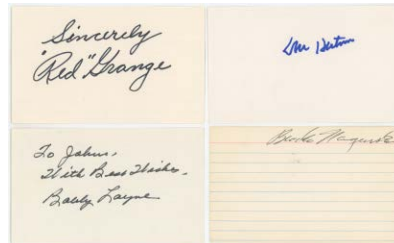 Sincerely
"Red" Grange
Don Hutson
To John,
With Best Wishes,
Bobby Layne
Bronko Nagurski